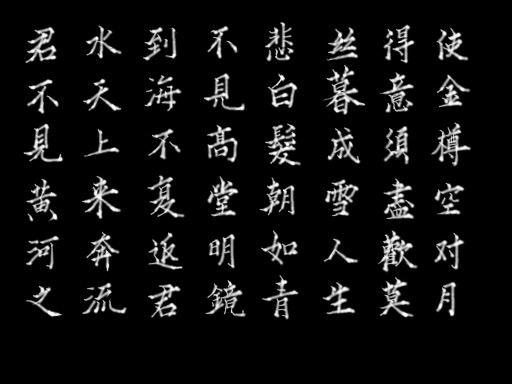 君不見黄河之
水天上来奔流
到海不复返君
不見高堂明鏡
悲白髮朝如青
丝暮成雪人生
得意須盡歡莫
使金樽空对月